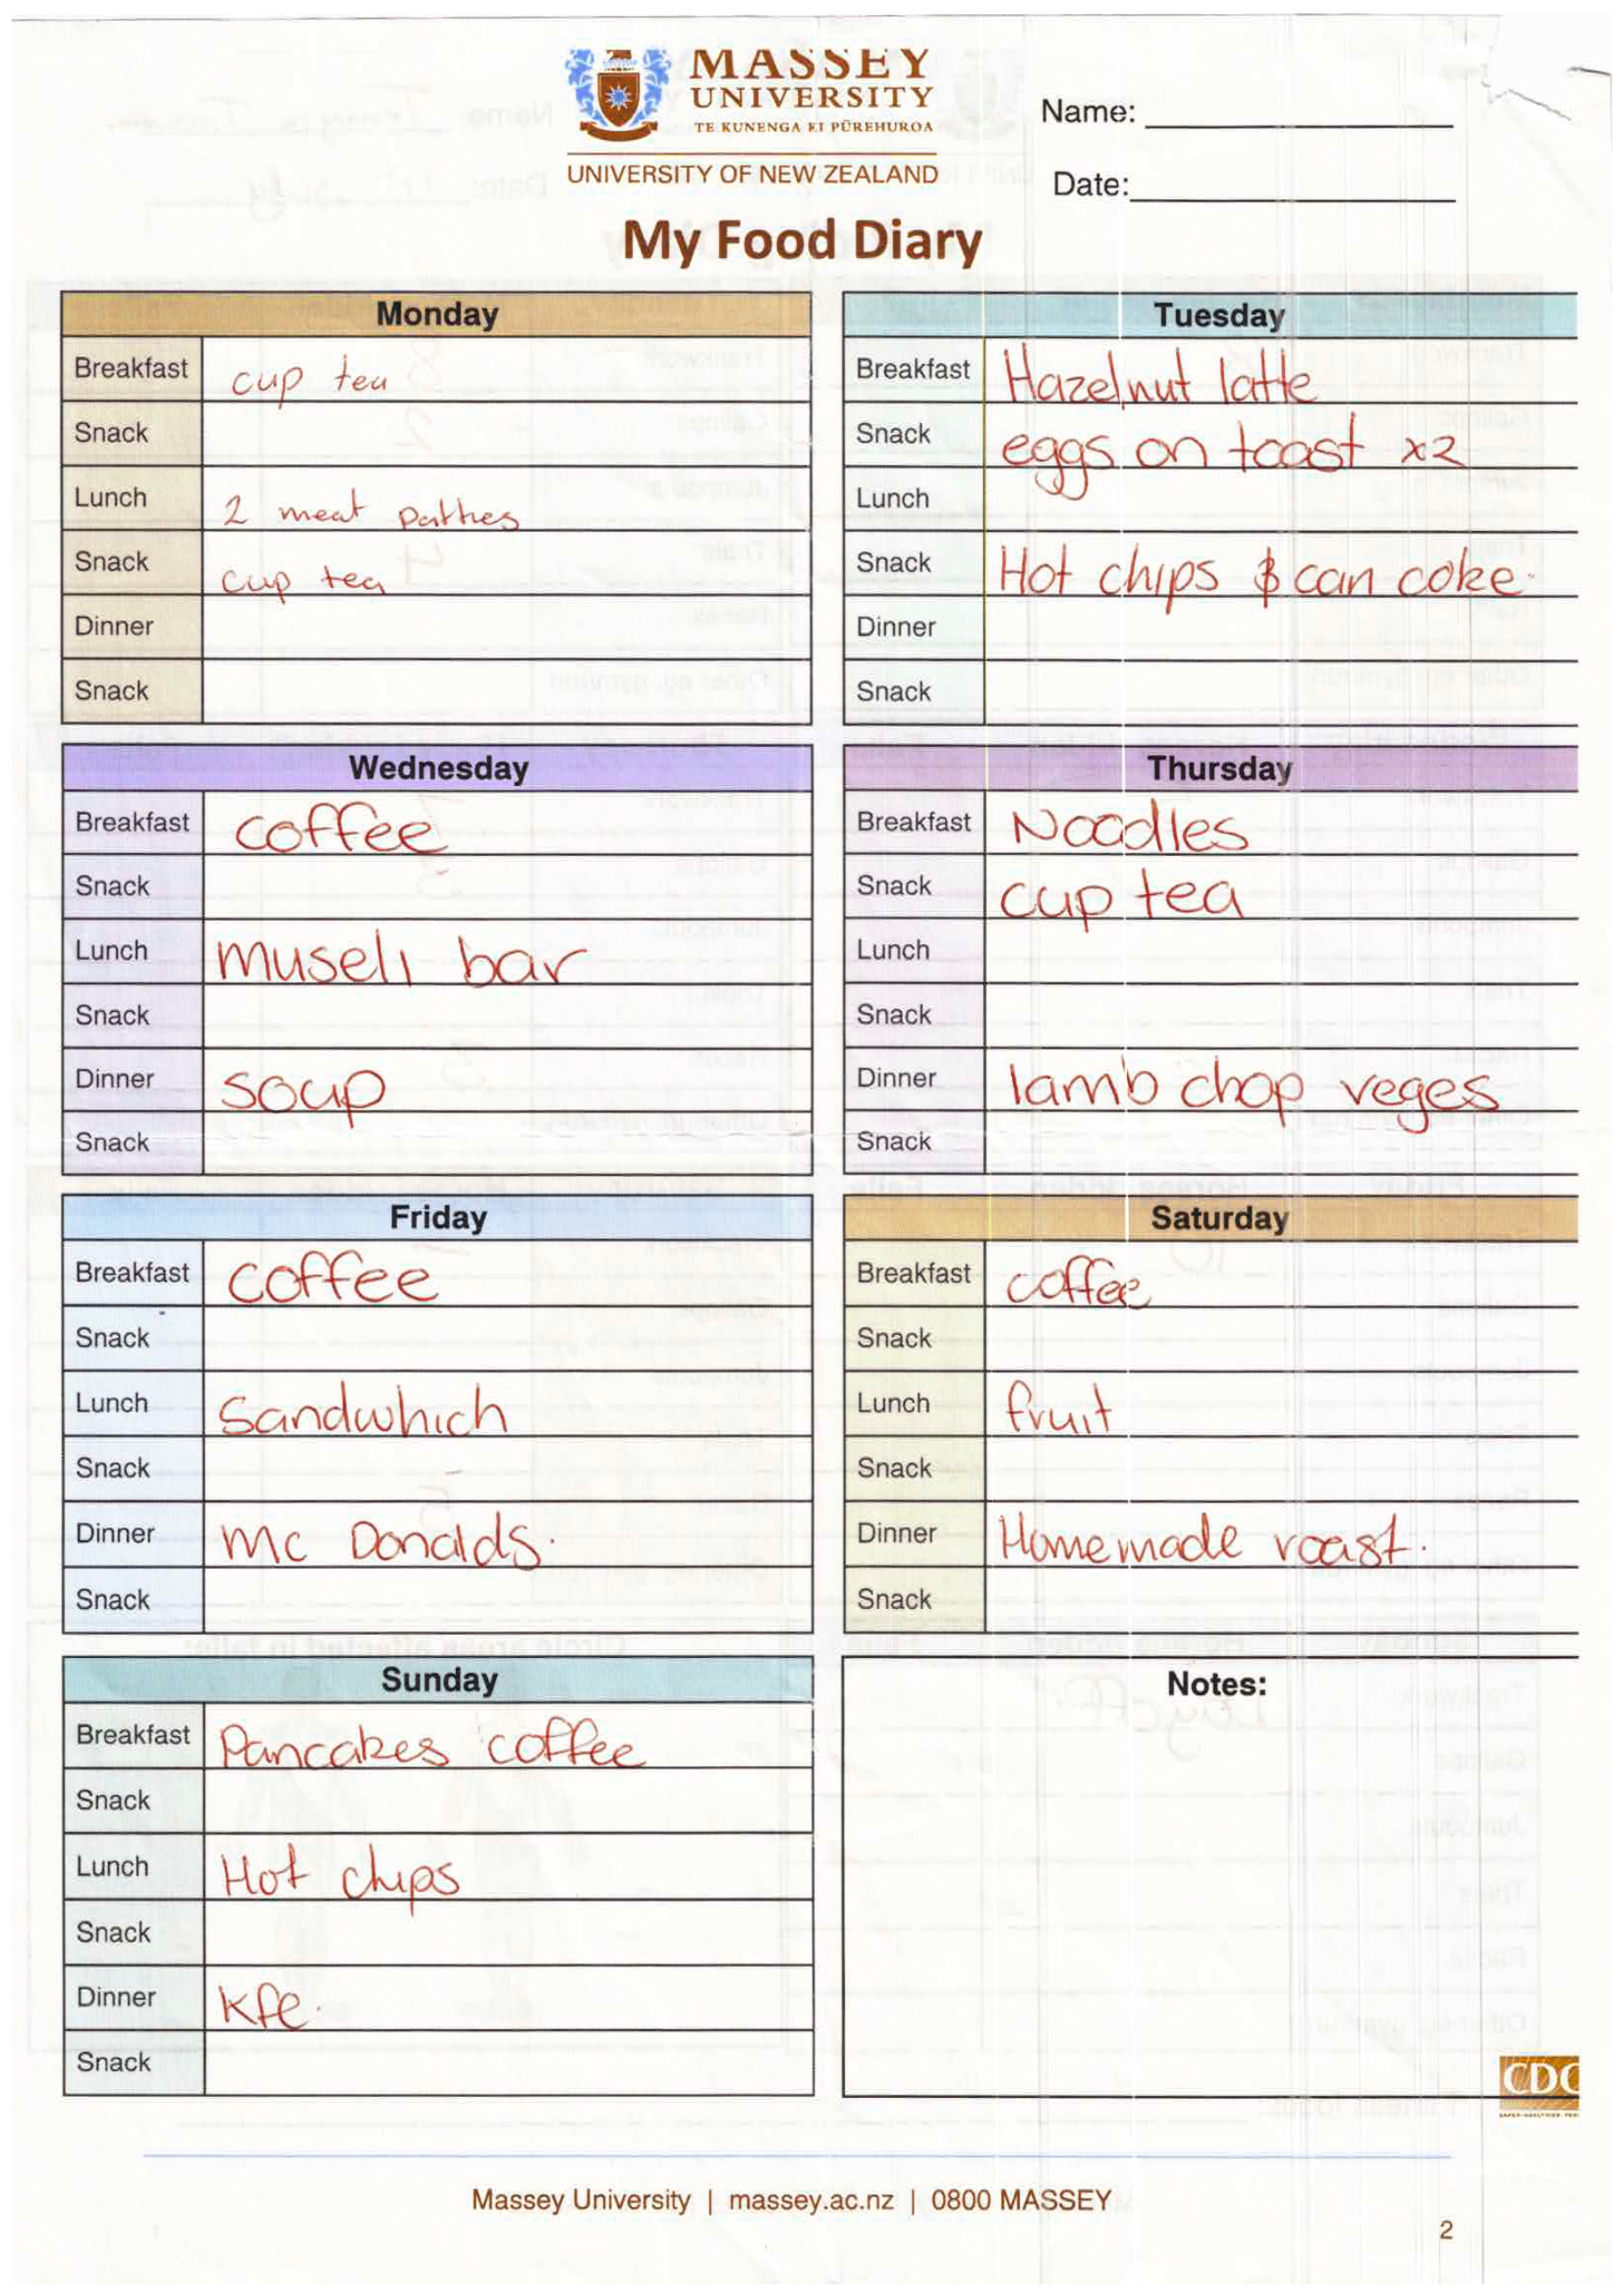 MASSEY
UNIVERSITY
TE KUNENGA KI PŪREHUROA
UNIVERSITY OF NEW ZEALAND
Name:
Date:
My Food Diary
Monday
Breakfast cup tea
Snack
Lunch 2 meat patties
Snack cup tea
Dinner
Snack
Tuesday
Breakfast Hazelnut latte
Snack eggs on toast x2
Lunch
Snack Hot chips & can coke.
Dinner
Snack
Wednesday
Breakfast coffee
Snack
Lunch museli bar
Snack
Dinner soup
Snack
Thursday
Breakfast Noodles
Snack cup tea
Lunch
Snack
Dinner lamb chop veges
Snack
Friday
Breakfast coffee
Snack
Lunch Sandwhich
Snack
Dinner Mc Donalds.
Snack
Saturday
Breakfast coffee
Snack
Lunch fruit
Snack
Dinner Homemade roast.
Snack
Sunday
Breakfast Pancakes coffee
Snack
Lunch Hot chips
Snack
Dinner Kfc.
Snack
Notes:
CDC
Massey University | massey.ac.nz | 0800 MASSEY
2